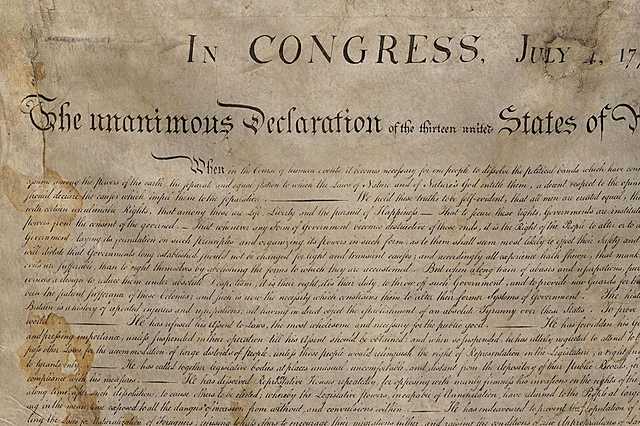 IN CONGRESS, JULY 4, 17
The unanimous Declaration of the thirteen united States of
When in the Course of human events it becomes necessary for one people to dissolve the political bands which have con
among the powers of the earth, the separate and equal station to which the Laws of Nature and of Nature's God entitle them, a decent respect to the opin
should declare the causes which impel them to the separation. — We hold these truths to be self-evident, that all men are created equal, tha
with certain unalienable Rights, that among these are Life, Liberty and the pursuit of Happiness — That to secure these rights, Governments are institute
powers from the consent of the governed — That whenever any Form of Government becomes destructive of these ends, it is the Right of the People to alter or to a
Government, laying its foundation on such principles and organizing its powers in such form, as to them shall seem most likely to effect their Safety and
will dictate that Governments long established should not be changed for light and transient causes; and accordingly all experience hath shewn, that mank
are sufferable, than to right themselves by abolishing the forms to which they are accustomed. — But when a long train of abuses and usurpations, pur
a design to reduce them under absolute Despotism, it is their right, it is their duty, to throw off such Government, and to provide new Guards for
the patient sufferance of these Colonies; and such is now the necessity which constrains them to alter their former Systems of Government. — The
Britain is a history of repeated injuries and usurpations, all having in direct object the establishment of an absolute Tyranny over these States. To prove
world. — He has refused his Assent to Laws, the most wholesome and necessary for the public good. — He has forbidden his
and pressing importance, unless suspended in their operation till his Assent should be obtained; and when so suspended, he has utterly neglected to attend to
pass other Laws for the accommodation of large districts of people, unless those people would relinquish the right of Representation in the Legislature, a right
to tyrants only. — He has called together legislative bodies at places unusual, uncomfortable, and distant from the depository of their public Records, for
compliance with his measures. — He has dissolved Representative Houses repeatedly, for opposing with manly firmness his invasions on the rights of the
a long time, after such dissolutions, to cause others to be elected; whereby the Legislative powers, incapable of Annihilation, have returned to the People at large
in the mean time exposed to all the dangers of invasion from without, and convulsions within. — He has endeavoured to prevent the population of
the Laws for Naturalization of Foreigners; refusing to pass others to encourage their migrations hither, and raising the conditions of new Appropriations of L